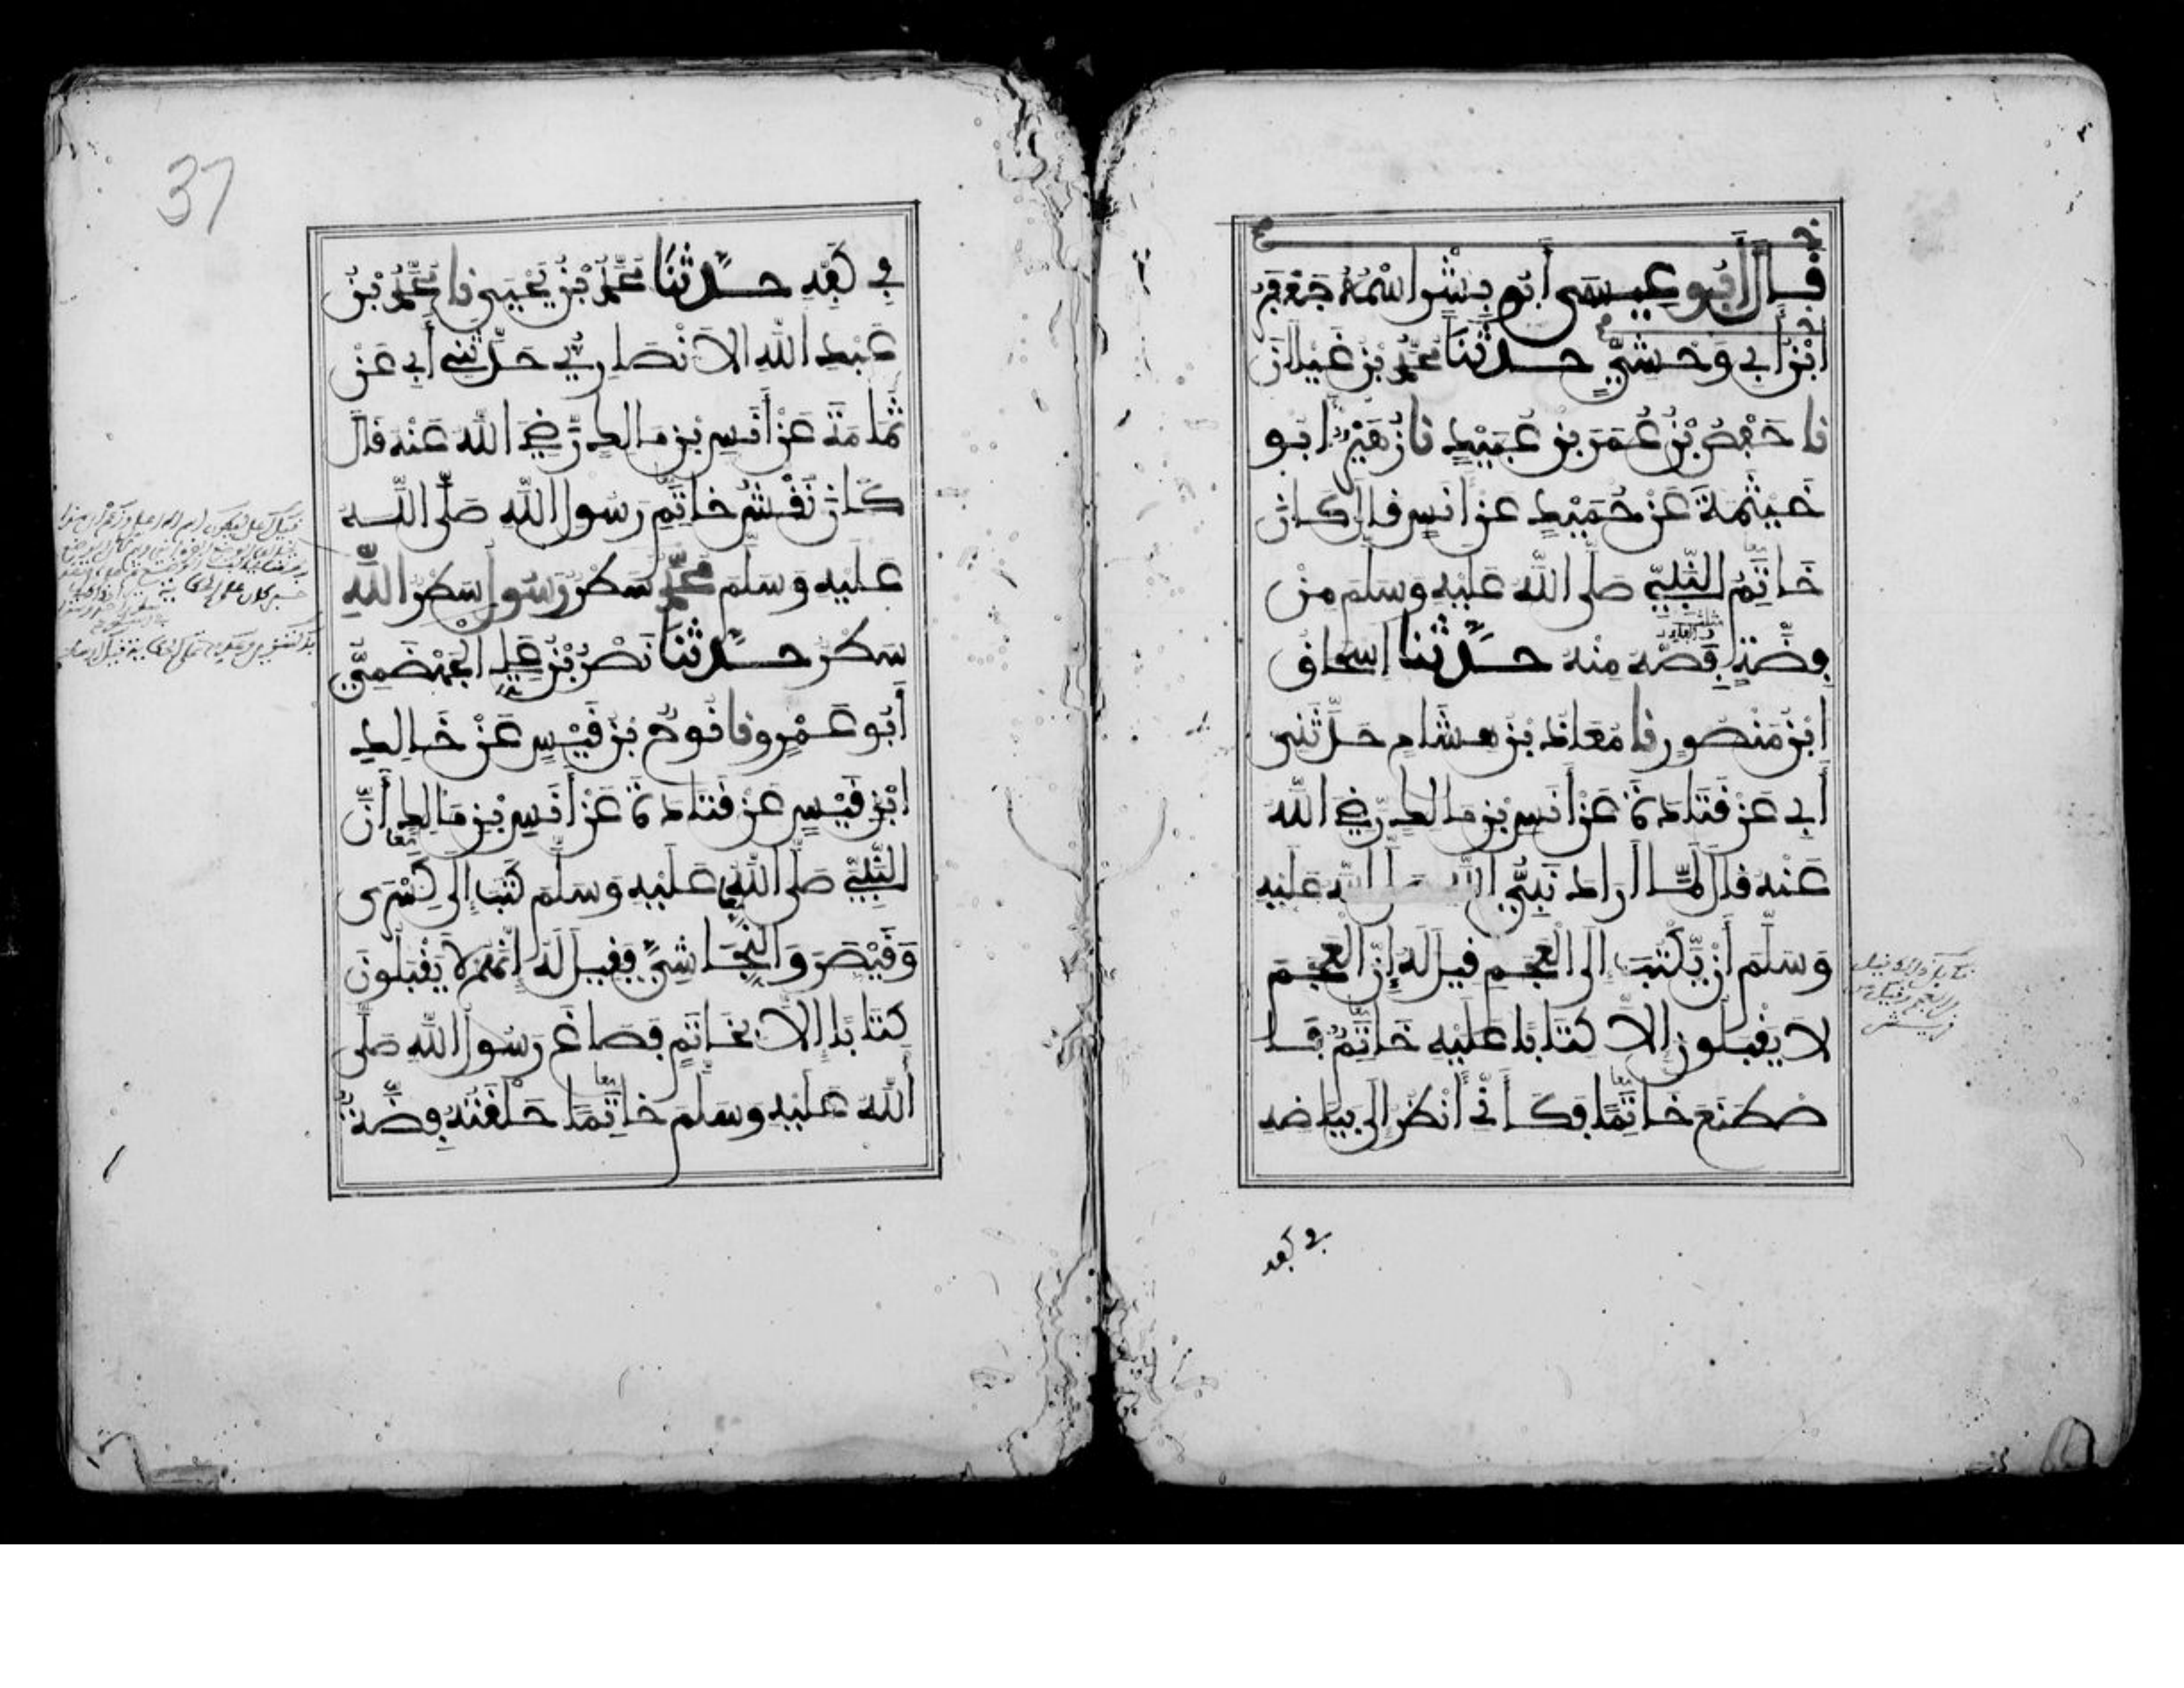 قَالَ أَبُو عِيسَى أَبُو بِشْرٍ اسْمُهُ جَعْفَرُ
ابْنُ أَبِي وَحْشِيٍّ حدثَنَا مُحَمَّدُ بْنُ غَيْلَانَ
نا حَفْصُ بْنُ عُمَرَ بْنِ عُبَيْدٍ نا زُهَيْرٌ أبُو
خَيْثَمَةَ عَنْ حُمَيْدٍ عَنْ أَنَسٍ قال كَانَ
خَاتَِمُ النَّبِيِّ صَلَّى اللَّهُ عَلَيْهِ وَسَلَّمَ مِنْ
فِضَّةٍ فَصُّهُ مِنْهُ حَدَّثَنا إسحاق
ابْنُ مَنْصُورٍ نا مُعَاذُ بْنُ هِشَامٍ حَدَّثَنِي
أَبِي عَنْ قَتَادَةَ عَنْ أَنَسِ بْنِ مَالِكٍ رَّضِيَ اللَّهُ
عَنْهُ قَالَ لَمَّا أَرَادَ نَبِيُّ اللَّهِ صَلَّى اللَّهُ عَلَيْهِ
وَسَلَّمَ أَنْ يَّكْتُبَ إِلَى الْعَجَمِ قِيلَ لَهُ إِنَّ الْعَجَمَ
لَا يَقْبَلُونَ إِلَّا كِتَابًا عَلَيْهِ خَاتَِمٌ فَا
صْطَنَعَ خَاتَِمًا فَكَأَنِّي أَنْظُرُ إِلَى بَيَاضِهِ
في كفه
37
فِي كَفِّهِ حَدَّثَنَا مُحَمَّدُ بْنُ يَحْيَى نا مُحَمَّدُ بْنُ
عَبْدِ اللَّهِ الْأَنْصَارِيُّ حَدَّثَنِي أَبِي عَنْ
ثُمَامَةَ عَنْ أَنَسِ بْنِ مَالِكٍ رَّضِيَ اللَّهُ عَنْهُ قَالَ
كَانَ نَقْشُ خَاتَِمِ رَسُولِ اللَّهِ صَلَّى اللَّه
عَلَيْهِ وَسَلَّمَ مُحَمَّدٌ سَطْرٌ رَسُولٌ سَطْرٌ اللَّهِ
سَطْرٌ حَدَّثَنَا نَصْرُ بْنُ عَلِي الْجَهْضَمِيُّ
أَبُو عَمْرٍو نا نُوحُ بْنُ قَيْسٍ عَنْ خَالِدِ
ابْنِ قَيْسٍ عَنْ قَتَادَةَ عَنْ أَنَسِ بْنِ مَالِكٍ أَنَّ
النَّبِيَّ صَلَّى اللَّهُ عَلَيْهِ وَسَلَّمَ كَتَبَ إِلَى كِسْرَى
وَقَيْصَرَ وَالنَّجَاشِيِّ فَقِيلَ لَهُ إِنَّهُمْ لَا يَقْبَلُونَ
كِتَابًا إِلَّا بِخَاتَِمٍ فَصَاغَ رَسُولُ اللَّهِ صَلَّى
اللَّهُ عَلَيْهِ وَسَلَّمَ خَاتَِمًا حَلْقَتُهُ فِضَّةٌ